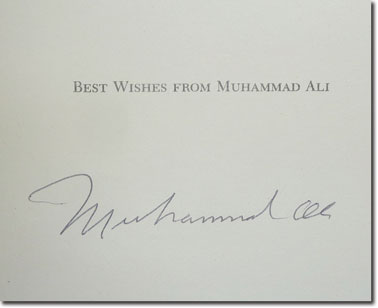 Best Wishes from Muhammad Ali
Muhammad Ali